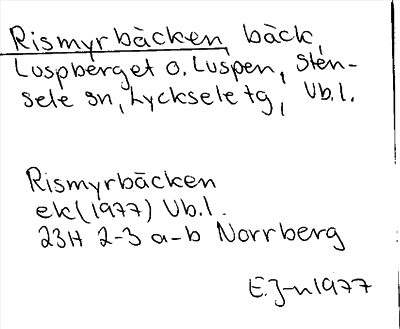 Rismyrbäcken, bäck,
Luspberget o. Luspen, Sten-
sele sn, Lycksele tg, Vb.l.
Rismyrbäcken
ek(1977) Vb.l.
23H 2-3 a-b Norrberg
E.J-n1977